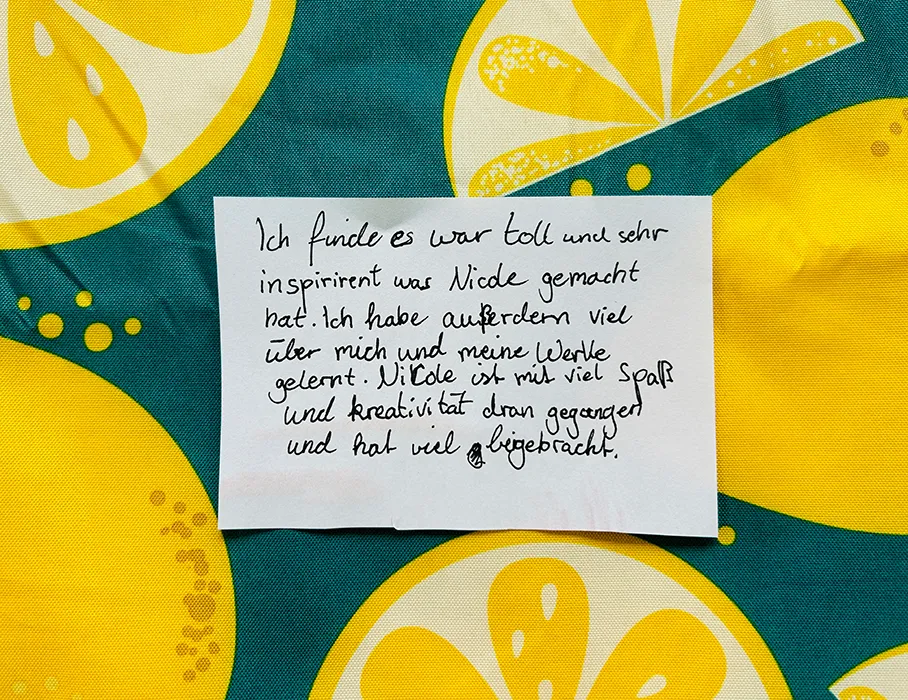 Ich finde es war toll und sehr
inspirirent was Nicole gemacht
hat. Ich habe außerdem viel
über mich und meine Werke
gelernt. Nicole ist mit viel Spaß
und kreativität dran gegangen
und hat viel beigebracht.